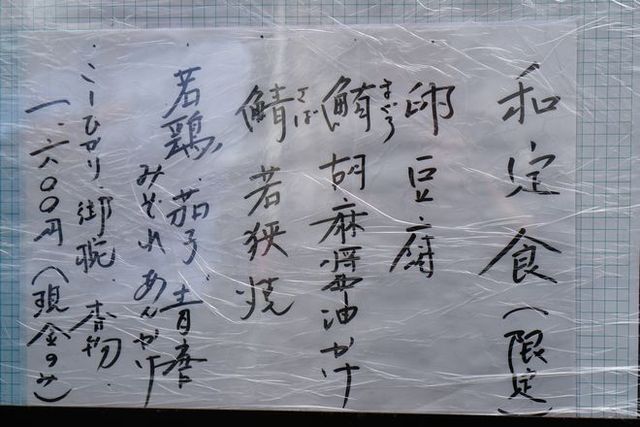 和定食(限定)
卵豆腐
鮪胡麻醤油かけ
まぐろ
鯖若狭焼
さば
若鶏、茄子、青唐
みぞれあんかけ
こしひかり御飯 香物
一、六〇〇円(現金のみ)